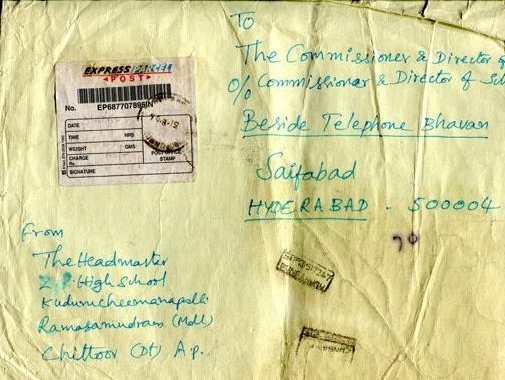 To
The Commissioner & Director of
O/o Commissioner & Director of Sch
Beside Telephone Bhavan
Saifabad
HYDERABAD - 500004
EXPRESS
POST
No. EP687707895IN
DATE
TIME HRS
WEIGHT GMS
CHARGE
Rs.
SIGNATURE
STAMP
From
The Headmaster
Z.P. High School
Kudurucheemanapalli
Ramasamudram (Mdl)
Chittoor (Dt) A.p.
70